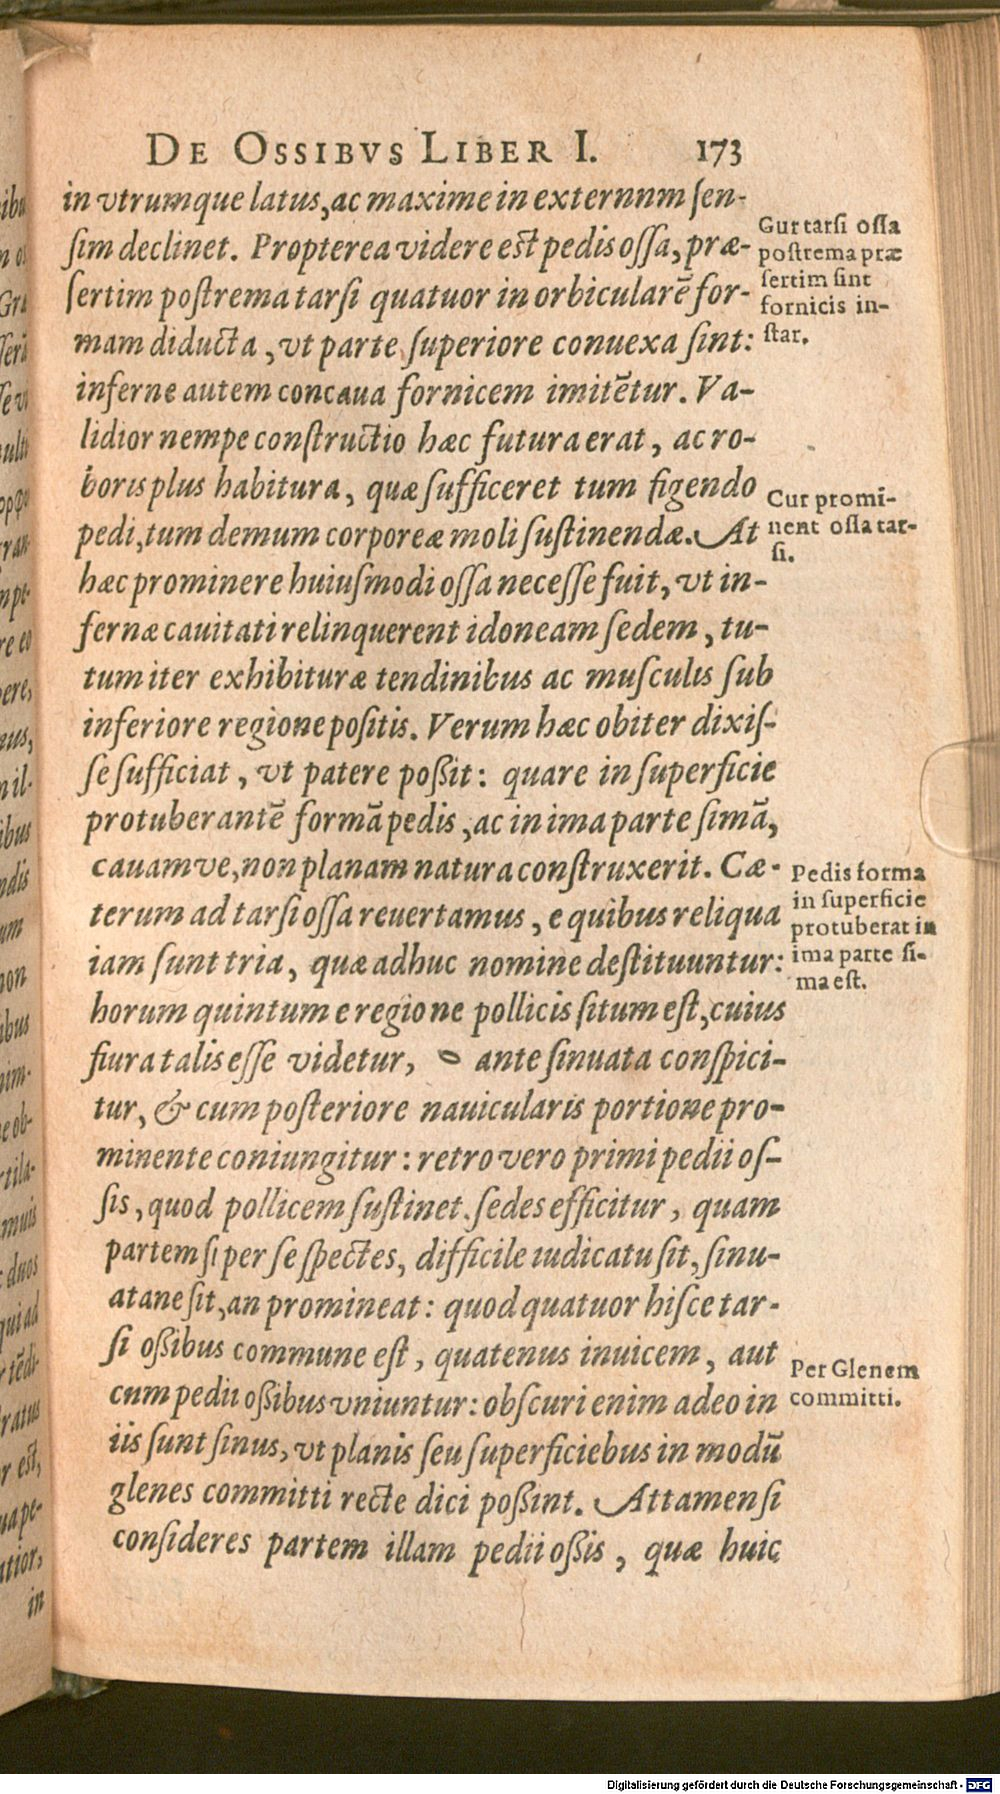 DE OSSIBVS LIBER I. 173
in vtrumque latus, ac maxime in externnm ſen-
ſim declinet. Propterea videre est pedis oſſa, præ-
ſertim poſtrema tarſi quatuor in orbicularē for-
mam diducta, vt parte ſuperiore conuexa ſint:
inferne autem concaua fornicem imitētur. Va-
lidior nempe conſtructio hæc futura erat, ac ro-
boris plus habitura, quæ ſufficeret tum figendo
pedi, tum demum corporeæ moli ſuſtinendæ. At
hæc prominere huiuſmodi oſſa neceſſe fuit, vt in-
fernæ cauitati relinquerent idoneam ſedem, tu-
tum iter exhibituræ tendinibus ac muſculis ſub
inferiore regione poſitis. Verum hæc obiter dixiſ-
ſe ſufficiat, vt patere poßit: quare in ſuperficie
protuberantē formā pedis, ac in ima parte ſimā,
cauamve, non planam natura conſtruxerit. Cæ-
terum ad tarſi oſſa reuertamus, e quibus reliqua
iam ſunt tria, quæ adhuc nomine deſtituuntur:
horum quintum e regione pollicis ſitum eſt, cuius
fiura talis eſſe videtur, ante ſinuata conſpici-
tur, & cum poſteriore nauicularis portione pro-
minente coniungitur: retro vero primi pedii oſ-
ſis, quod pollicem ſuſtinet. ſedes efficitur, quam
partem ſi per ſe ſpectes, difficile iudicatu ſit, ſinu-
ata ne ſit, an promineat: quod quatuor hiſce tar-
ſi oßibus commune eſt, quatenus inuicem, aut
cum pedii oßibus vniuntur: obſcuri enim adeo in
iis ſunt ſinus, vt planis ſeu ſuperficiebus in modū
glenes committi recte dici poßint. Attamen ſi
conſideres partem illam pedii oßis, quæ huic
Gur tarſi oſſa
poſtrema præ
ſertim ſint
fornicis in-
ſtar.
Cur promi-
nent oſſa tar-
ſi.
Pedis forma
in ſuperficie
protuberat in
ima parte ſi-
ma eſt.
Per Glenem
committi.
Digitalisierung gefördert durch die Deutsche Forschungsgemeinschaft - DFG